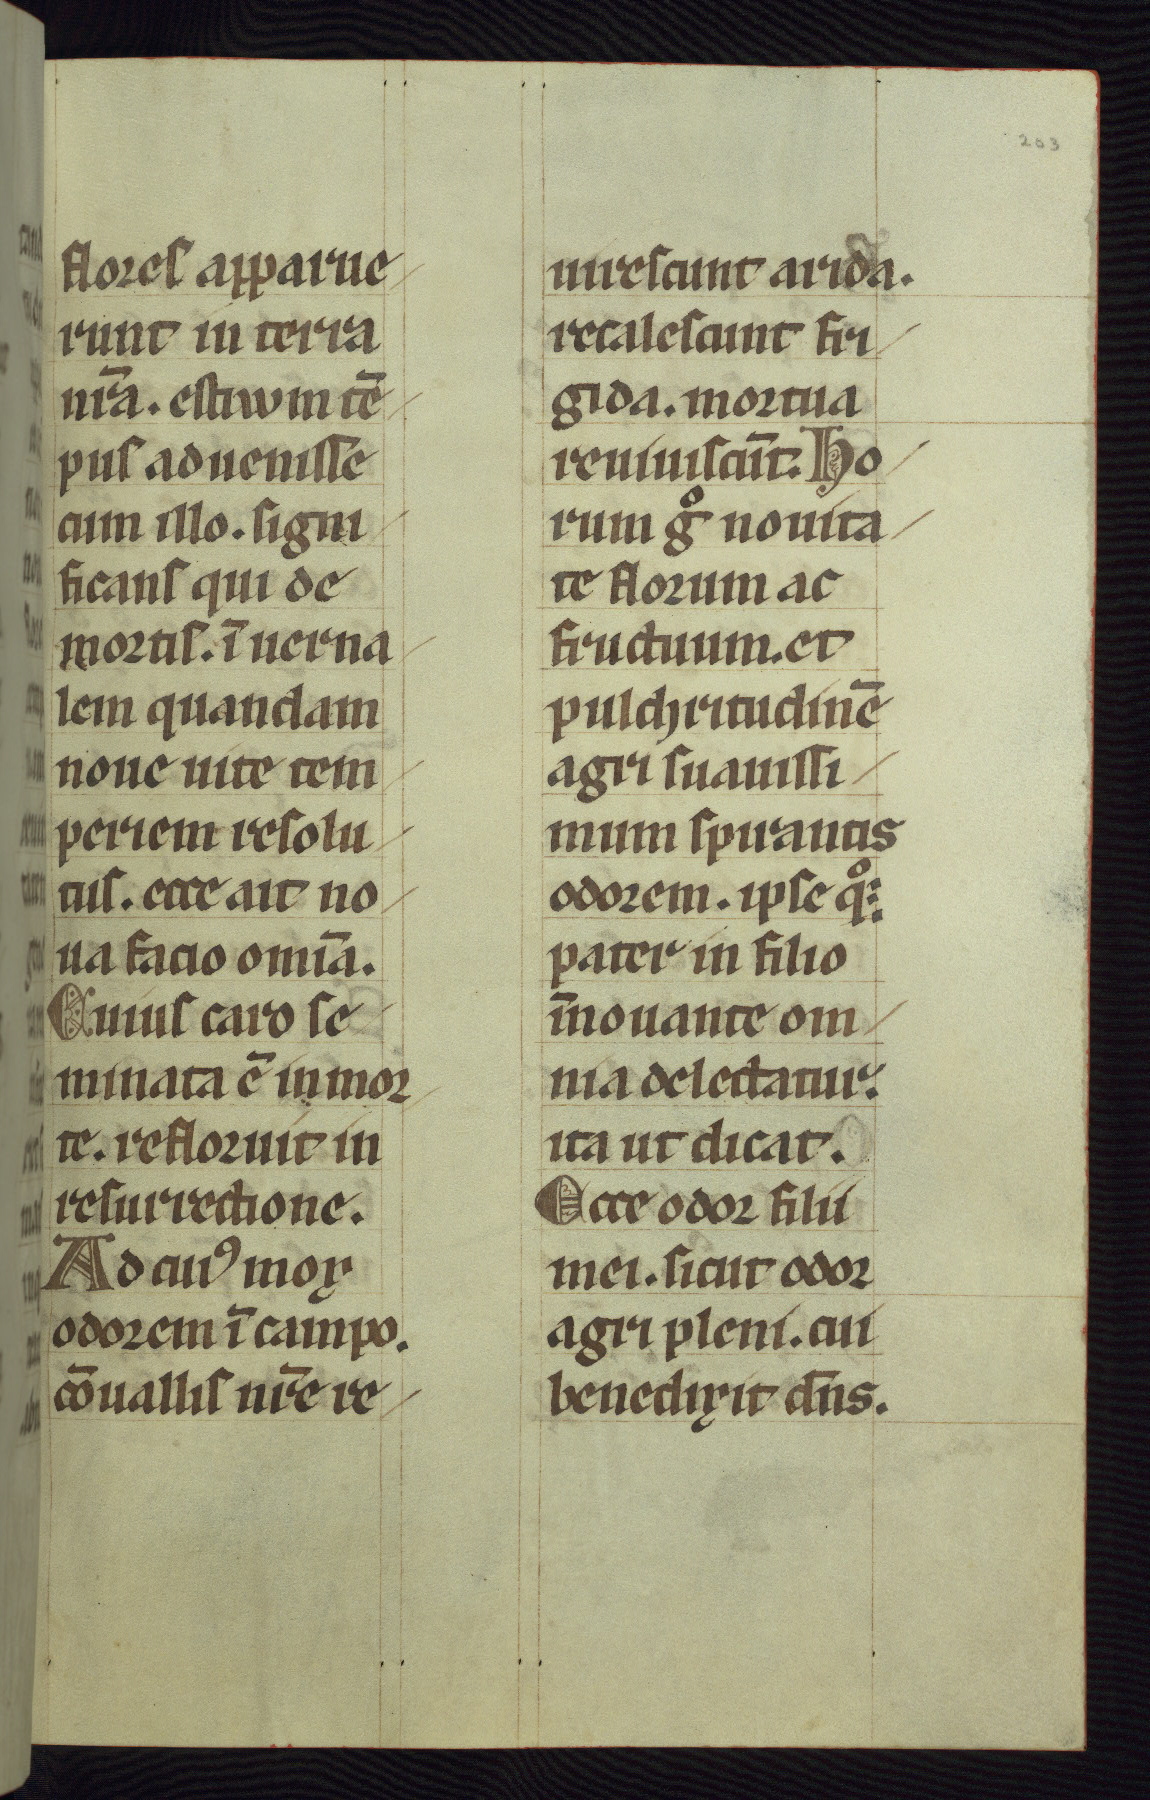 203
flores apparue
runt in terra
nr̄a. estiuum tē
pus aduenisse
cum illo. signi
ficans qui de
mortis. ī uerna
lem quandam
noue uite tem
periem resolu
tus. ecce ait no
ua facio omīa.
Cuius caro se
minata ē in mor
te. refloruit in
resurrectione.
Ad cuiꝰ mox
odorem ī campo.
cōuallis nr̄e re
uirescunt arida.
recalescunt fri
gida. mortua
reuiuiscūt. Ho
rum gͦ nouita
te florum ac
fructuum. et
pulchritudinē
agri suauissi
mum spirantis
odorem. ipse qͦꝫ
pater in filio
īnouante om
nia delectatur.
ita ut dicat.
Ecce odor filii
mei. sicut odor
agri pleni. cui
benedixit dn̄s.